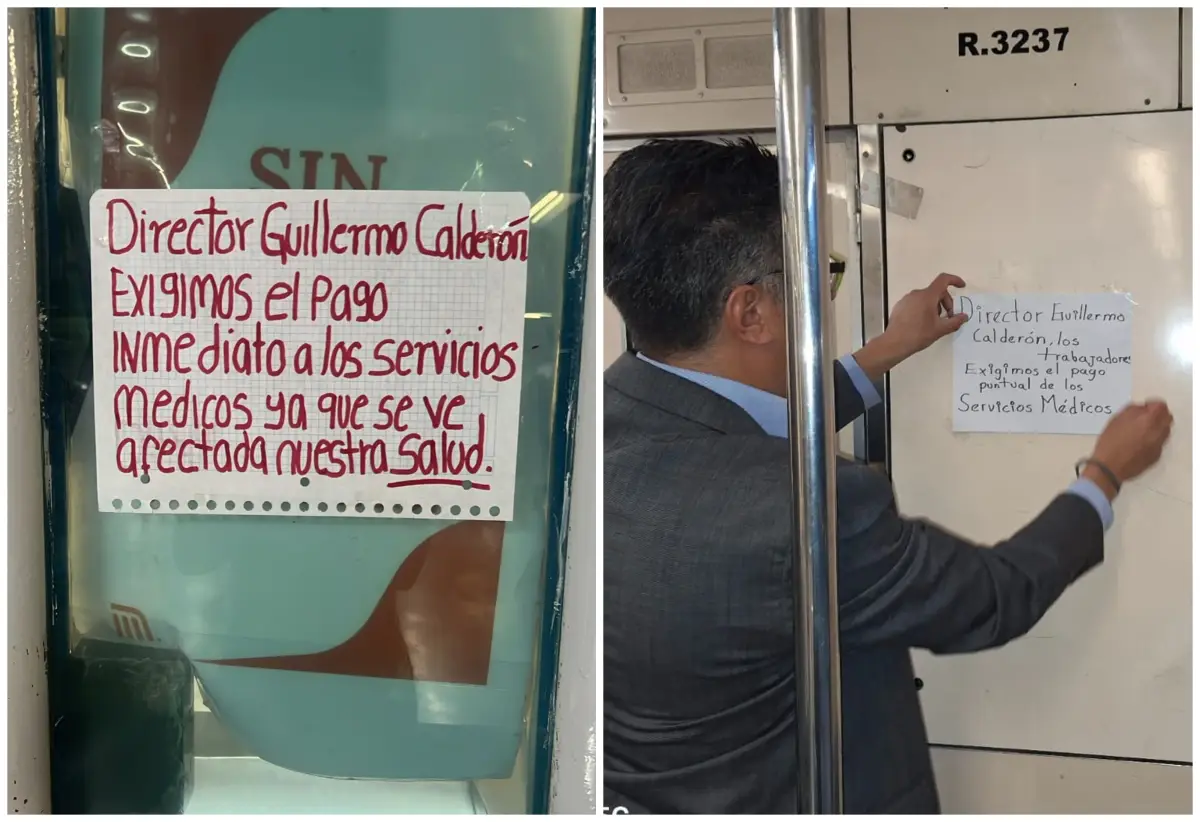 SIN
Director Guillermo Calderón
Exigimos el Pago
INmediato a los servicios
Medicos ya que se ve
afectada nuestra Salud.
R.3237
Director Guillermo
Calderón, los
trabajadores
Exigimos el pago
puntual de los
Servicios Médicos